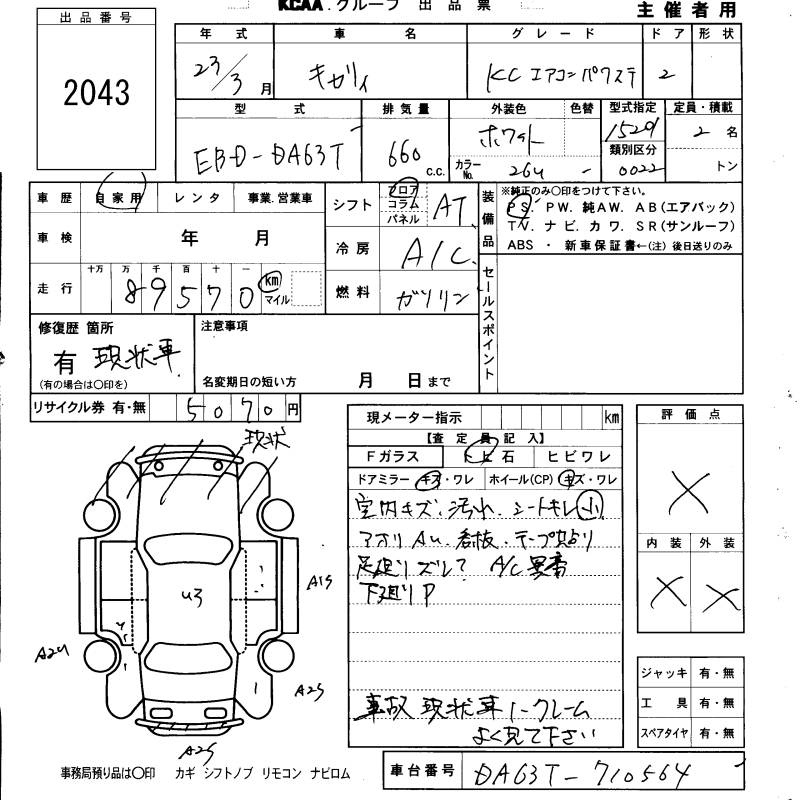 KCAA グループ 出品票
主催者用
出品番号
2043
年式 車名 グレード ドア 形状
23/3月 キャリィ KC エアコンパワステ 2
型式 排気量 外装色 色替 型式指定 定員・積載
EBD-DA63T 660 c.c. ホワイト 15291 2 名
カラーNo. 26U - 類別区分 0022 トン
車歴 自家用 レンタ 事業.営業車
シフト フロア コラム パネル AT
装備品 ※純正のみ〇印をつけて下さい。
PS. PW. 純AW. AB(エアバック)
TV. ナビ. カワ. SR(サンルーフ)
ABS ・ 新車保証書←(注) 後日送りのみ
車検 年 月
冷房 A/C
走行 十万 万 千 百 十 一
89570 km マイル
燃料 ガソリン
セールスポイント
修復歴 箇所
有 現状車
(有の場合は〇印を)
注意事項
名変期日の短い方 月 日まで
リサイクル券 有・無 5070円
現状
現メーター指示 km
【査定員記入】
Fガラス トビ石 ヒビワレ
ドアミラー キズ・ワレ ホイール(CP) キズ・ワレ
室内キズ.汚れ.シートキレ小
アオリ AU.看板.テープ貼り
足廻りズレ? A/C異音
下廻りP
事故 現状車 ノークレーム
よく見て下さい
評価点
X
内装 外装
X X
U3
A1S
A2U
A2S
A2S
ジャッキ 有・無
工具 有・無
スペアタイヤ 有・無
事務局預り品は〇印 カギ シフトノブ リモコン ナビロム
車台番号 DA63T-710564